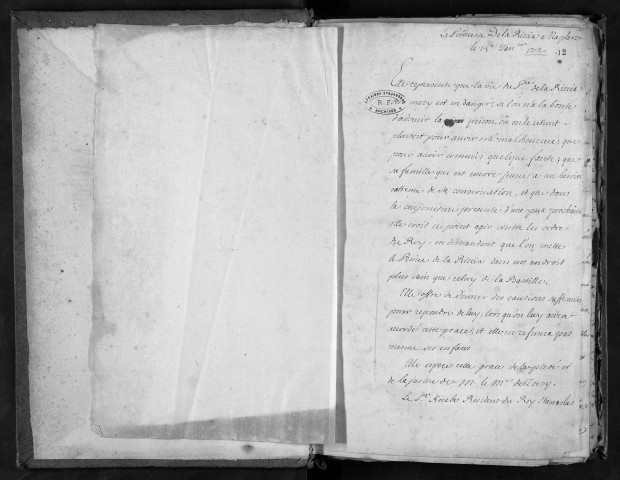 La Princesse de la Riccia a Naples
le 15e Janver 1712
12
Elle represente que la vie du Pce de la Riccia
mary est en danger, si l'on n'a la bonté
d'adoucir la prison, ou on le retient
plustost pour avoir esté malheureux, que
pour avoir commis quelque faute; que
sa famille qui est encore jeune a un besoin
extreme de sa conservation, et que dans
la conjoncture presente d'une paix prochaine
elle croit ne point agir contre les ordres
du Roy, en demandant que l'on mette
le Prince de la Riccia dans un endroit
plus sain que celuy de la Bastille.
Elle offre de donner des cautions suffisantes
pour repondre de luy, lorsqu'on luy aura
accordé cette grace, et elle ne refusera pas
mesme ses enfans
Elle espere cette grace de la pieté et
de la justice de M. le Mis de Torcy.
Le Sr Resident du Roy Stanislas
AFFAIRES ETRANGERES
R.F.
ARCHIVES